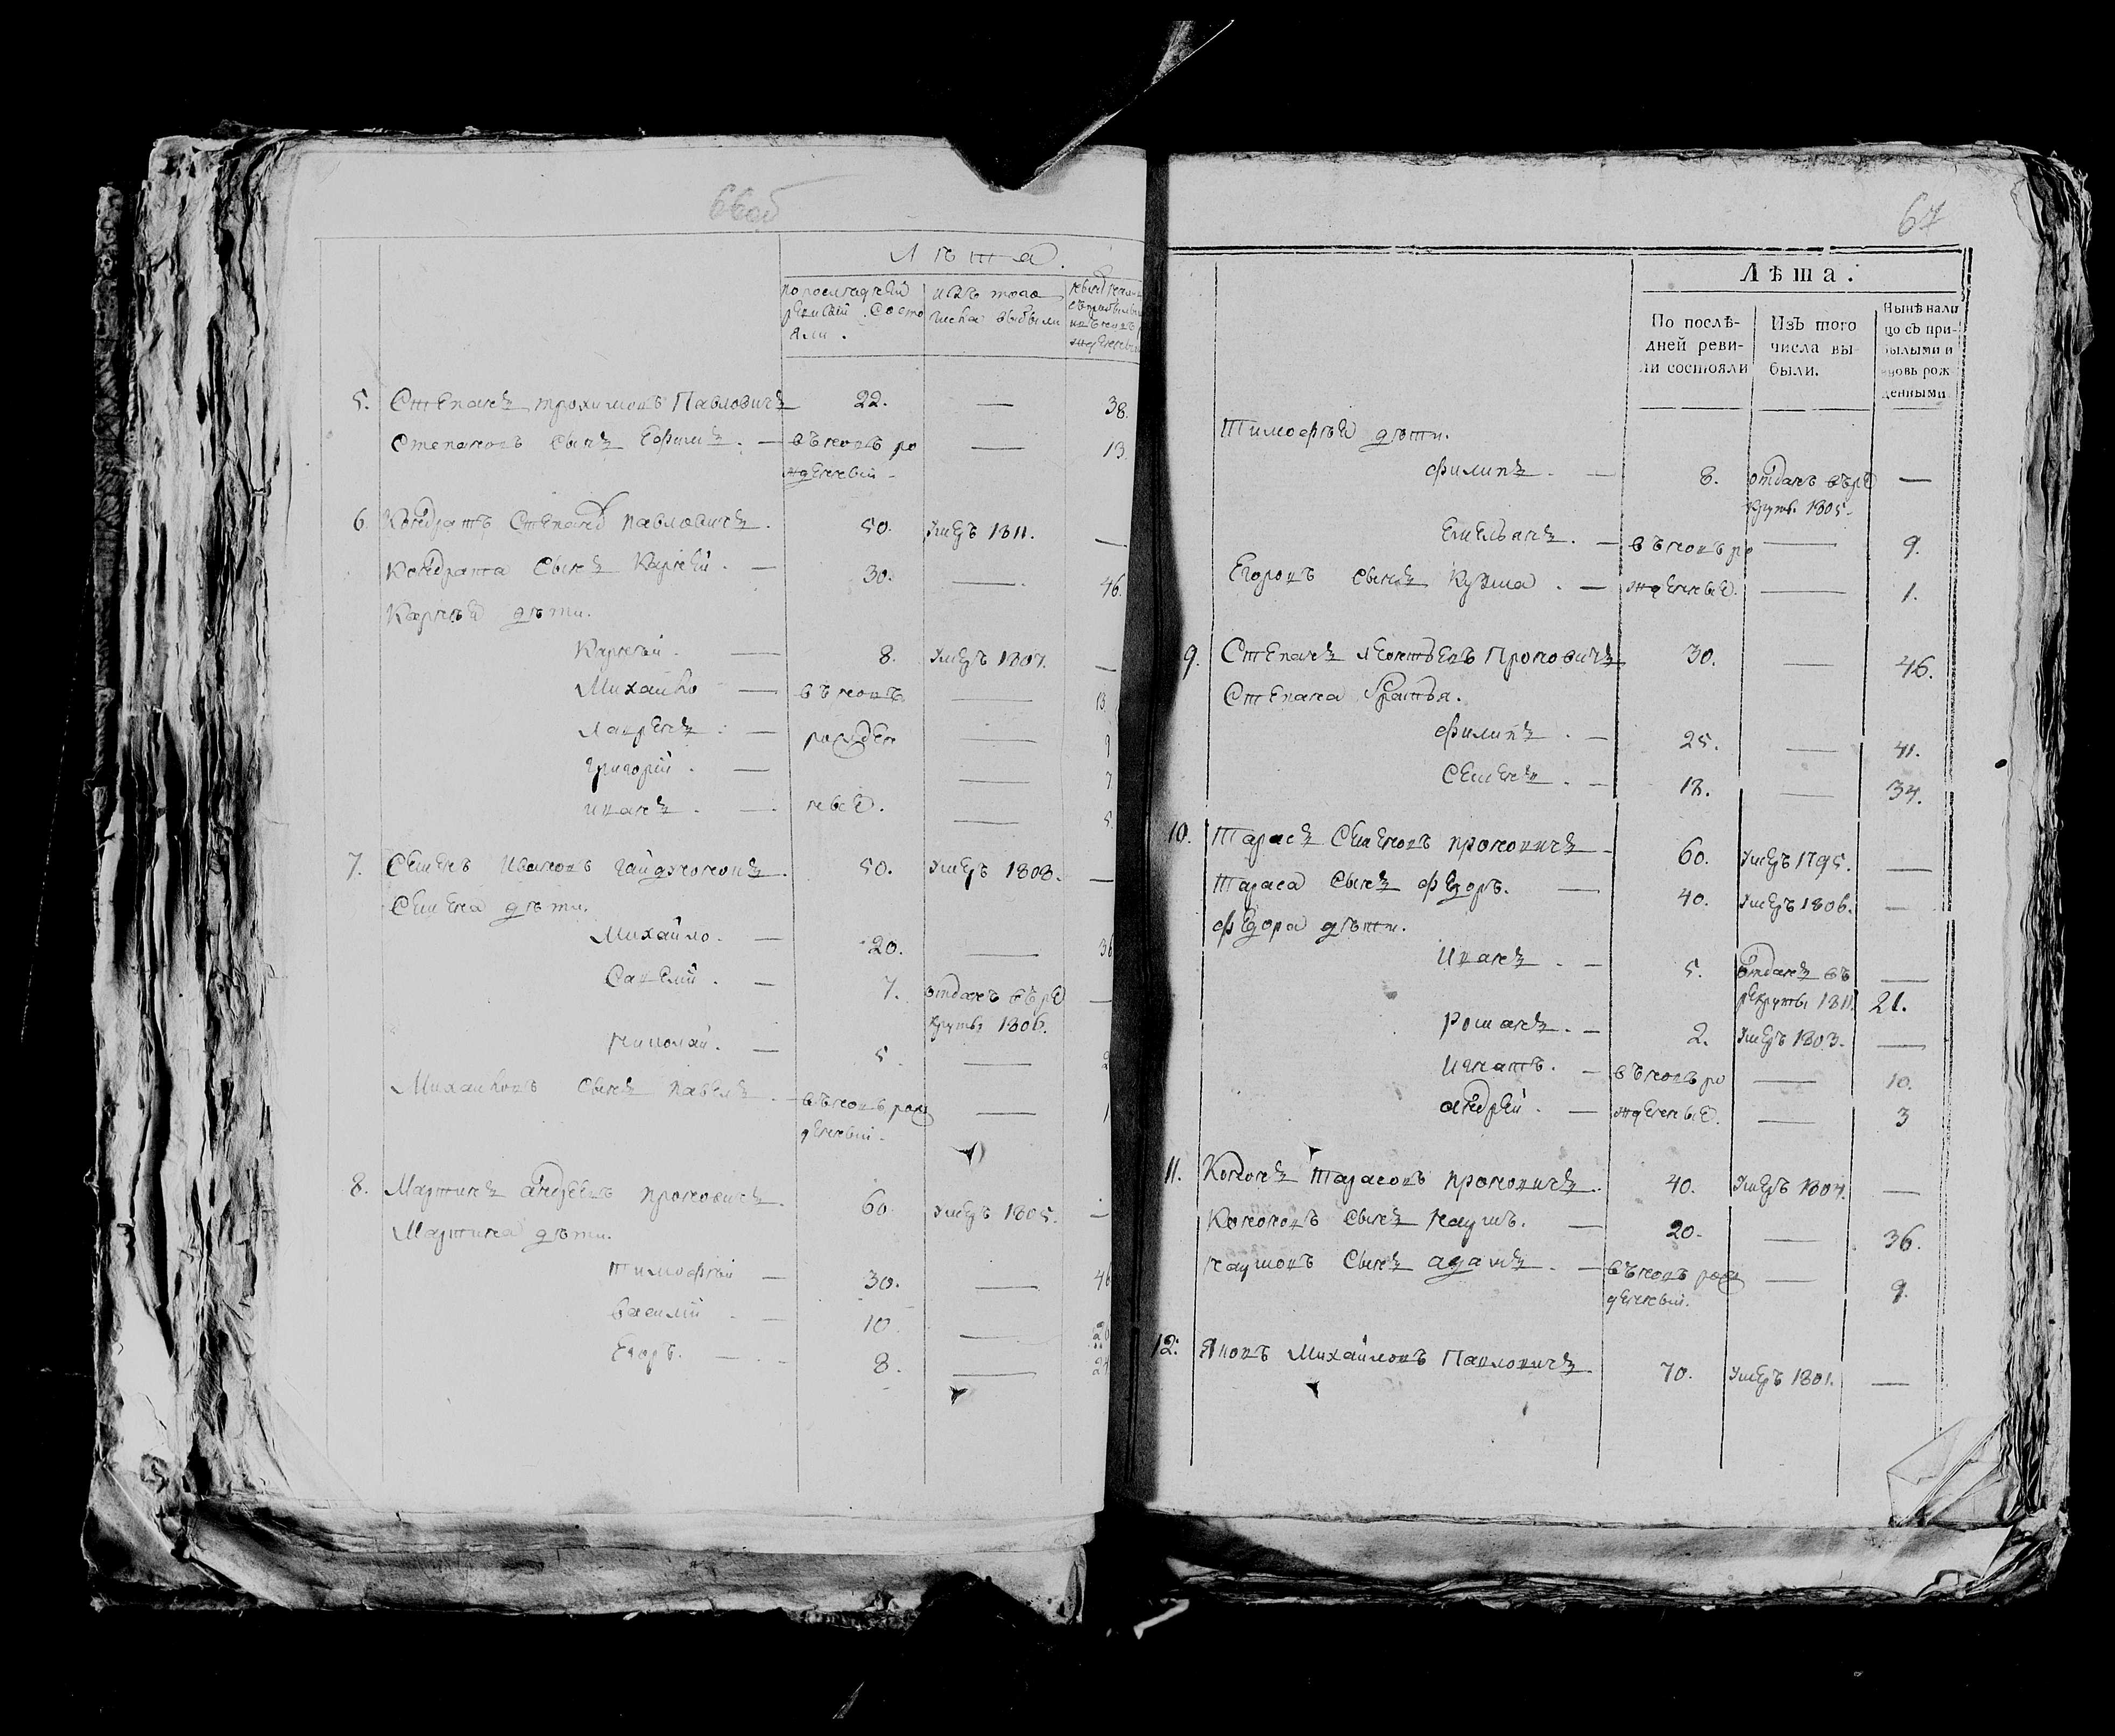 66об
Лѣта.
по последней ревизiи состояли.
изъ того числа выбыли
5. Степанъ трохимовъ Павловичъ 22. — 38.
Степановъ сынъ Ефимъ. — въновь ро — 13.
жденный.
6. Кондратъ Степановъ павловичъ. 50. умеръ 1811. —
Кондрата сынъ Карней. — 30. — 46.
Карнѣя дѣти.
Карнѣй. — 8. умеръ 1807. —
Михайло — въновь — 13
Лавренъ. — рожден —
григорiй. — — 7
иванъ. — ные. — 5.
7. Семенъ Ивановъ гайдюковъ. 50. умеръ 1808. —
Семена дѣти.
Михайло. — 20. — 36
Савелiй. — 7. отданъ въ ре —
круты 1806.
николай. — 5. — 2
Михайловъ сынъ павелъ. — въновь рож — 1
денный.
8. Мартинъ андреевъ проковичъ. 60. умеръ 1805. —
Мартина дѣти.
тимофѣй — 30. — 46
василiй — 10. — 26
Егоръ. — 8. — 24
67
Лѣта.
По послѣдней ревизiи состояли
Изъ того числа выбыли.
Нынѣ налицо съ прибылыми и вновь рожденными
Тимофѣя дѣти.
филипъ. — 8. отданъ въ ре —
круты 1805.
Емельянъ. — въновь ро — 9.
Егоровъ сынъ Кузма. — жденные. — 1.
9. Степанъ леонтьевъ Проковичъ 30. — 46.
Степана братья.
филипъ. — 25. — 41.
Семенъ. — 18. — 34.
10. Тарасъ Семеновъ проковичъ 60. умеръ 1795. —
Тараса сынъ федоръ. — 40. умеръ 1806. —
федора дѣти.
Иванъ. — 5. отданъ въ —
рекруты 1811. 21.
романъ. — 2. умеръ 1803. —
Игнатъ. — въновь ро — 10.
андрей. — жденные. — 3
11. Кононъ Тарасовъ проковичъ. 40. умеръ 1807. —
Кононовъ сынъ наумъ. — 20. — 36.
наумовъ сынъ адамъ. — въновь рож — 9.
денный.
12. Яковъ Михайловъ Павловичъ 70. умеръ 1801. —